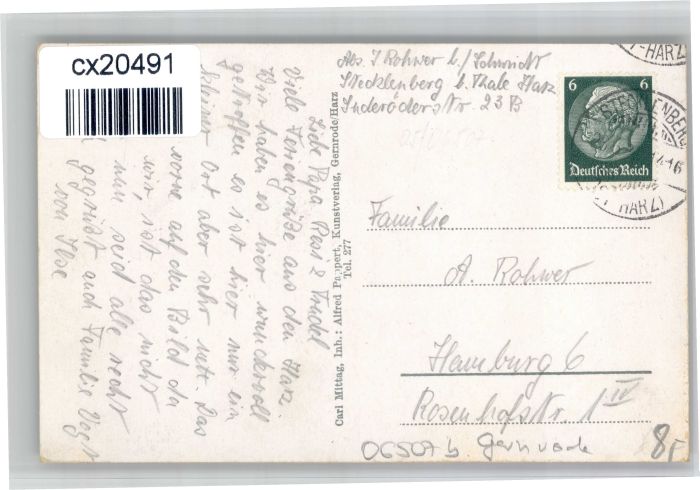 cx20491
Abs. I Rohwer b./Schmidt
Stecklenberg b. Thale Harz
Suderöderstr. 23 B
6 6
Deutsches Reich
HARZ)
Familie
A. Rohwer
Hamburg 6
Rosenhofstr. 1 IV
06507 b Gernrode
8,-
Carl Mittag, Inh.: Alfred Pappert, Kunstverlag, Gernrode/Harz
Tel. 277
Liebe Papa
Viele Feriengrüße aus dem Harz.
Wir haben es hier wundervoll
getroffen es ist hier nur ein
kleiner Ort aber sehr nett. Das
vorne auf den Bild da
wir, ist das nicht
nun seid alle recht
gegrüßt auch Familie Vogt
von Ilse